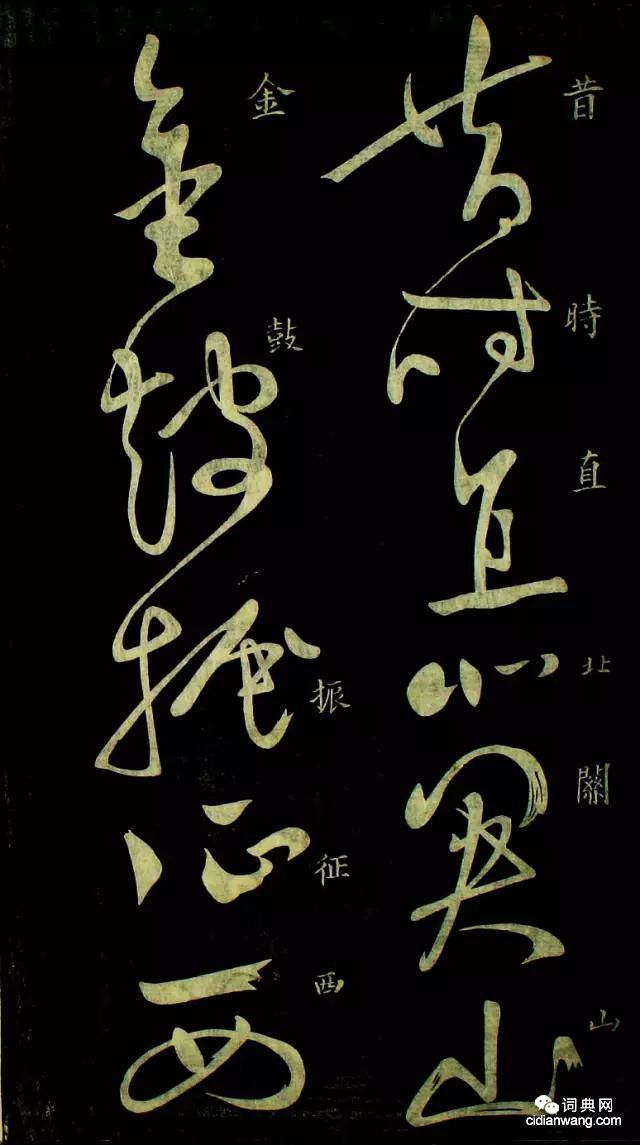 昔時直北關山
金鼓振征西
词典网
cidianwang.com